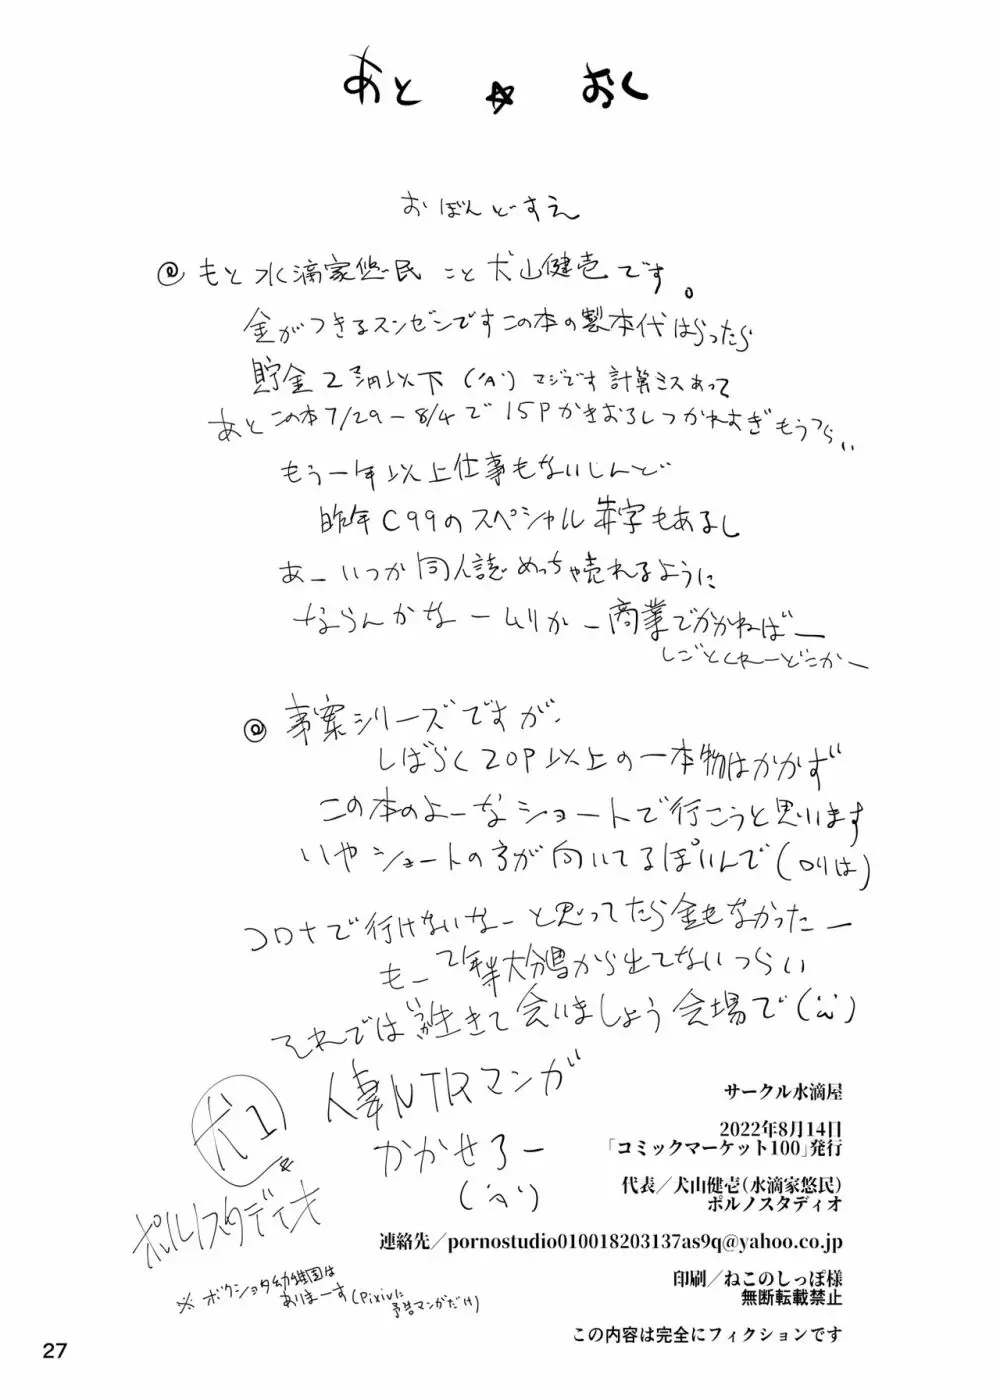 あと ☆ おく
おぼんどすえ
@ もと水滴家悠民 こと 犬山健壱です。
金がつきるスンゼンですこの本の製本代はらったら
貯金2万円以下 ('A`) マジです計算ミスあって
あとこの本7/29-8/4で15Pかきおろしつかれすぎもうつらい
もう一年以上仕事もないじんど
昨年C99のスペシャル赤字もあるし
あーいつか同人誌めっちゃ売れるように
ならんかなームリかー商業でかかねばー
しごとくれーどこかー
@ 事案シリーズですが、
しばらく20P以上の一本物はかかず
この本のよーなショートで行こうと思います
いやショートの方が向いてるぽいんで(ロリは)
コロナで行けないなーと思ってたら金もなかったー
もー2年半大分県から出てないつらい
それでは生きて会いましょう会場で
人妻NTRマンガ
かかせろー
犬1
ポルノスタディオ
※ボクショタ幼稚園は
ありまーす(Pixivに
予告マンガだけ)
サークル水滴屋
2022年8月14日
「コミックマーケット100」発行
代表／犬山健壱(水滴家悠民)
ポルノスタディオ
連絡先／pornostudio010018203137as9q@yahoo.co.jp
印刷／ねこのしっぽ様
無断転載禁止
この内容は完全にフィクションです
27